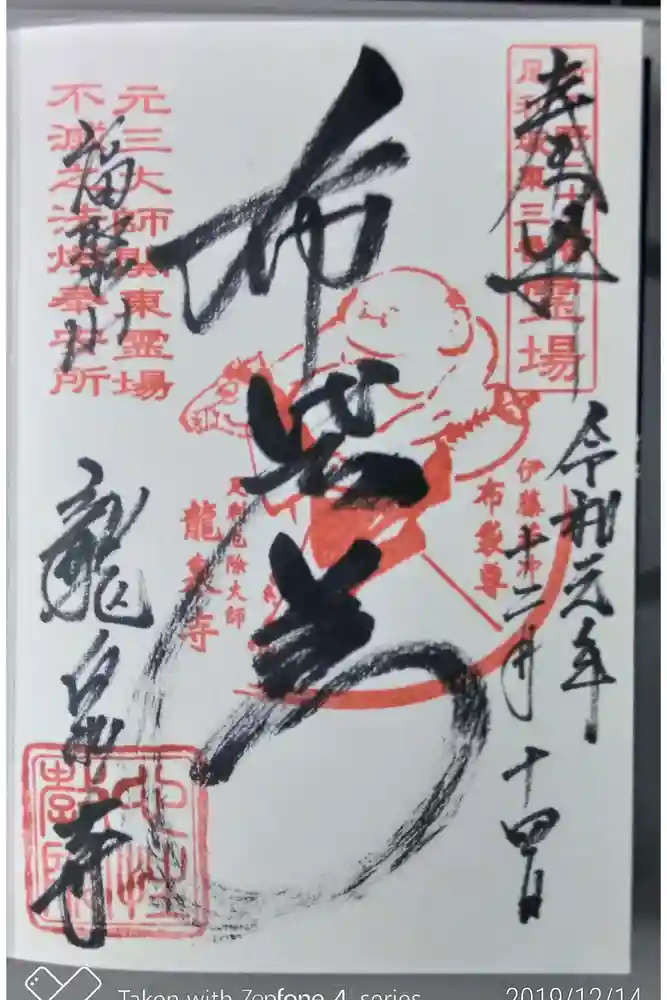 奉拝
令和元年
十二月十四日
霊場
布袋尊
伊藤
布袋尊
足利厄除大師
龍泉寺
元三大師関東霊場
不滅之法燈奉安所
福聚山
龍泉寺
Taken with Zenfone 4 series
2019/12/14